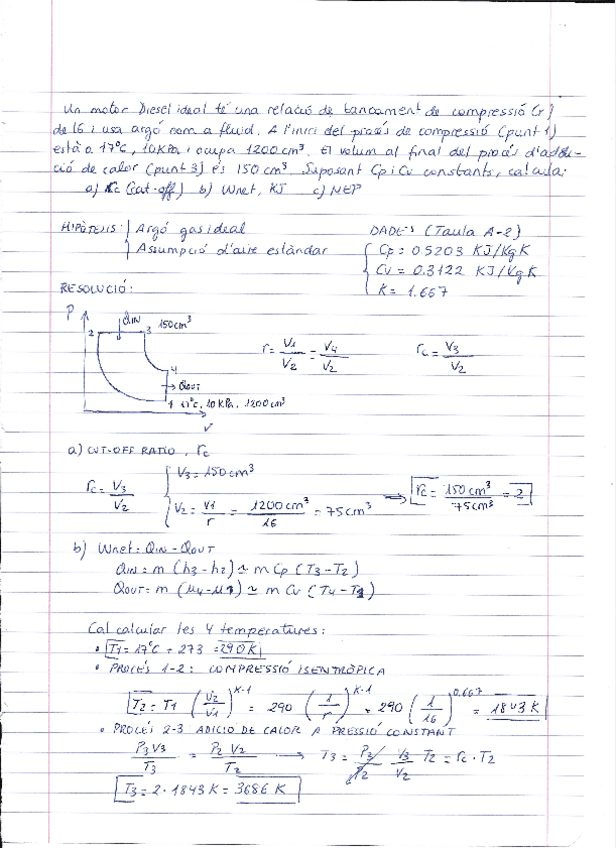 Un motor Diesel ideal té una relació de tancament de compressió (r)
de 16 i usa argó com a fluid. A l'inici del procés de compressió (punt 1)
està a 17°C, 10 KPa i ocupa 1200 cm³. El volum al final del procés d'addi-
ció de calor (punt 3) és 150 cm³. Suposant Cp i Cv constants, calcula:
a) rc (cut-off) b) Wnet, KJ c) MEP
HIPÒTESIS: Argó gas ideal
Assumpció d'aire estàndar
DADES (Taula A-2)
Cp = 0.5203 KJ/Kg K
Cv = 0.3122 KJ/Kg K
K = 1.667
RESOLUCIÓ:
P
QIN
2 3 150 cm³
4
QOUT
1 17°C, 10 KPa, 1200 cm³
V
r = V1/V2 = V4/V2
rc = V3/V2
a) CUT-OFF RATIO, rc
rc = V3/V2
V3 = 150 cm³
V2 = V1/r = 1200 cm³/16 = 75 cm³ → rc = 150 cm³/75 cm³ = 2
b) Wnet = QIN - QOUT
QIN = m (h3 - h2) ≃ m Cp (T3 - T2)
QOUT = m (u4 - u1) ≃ m Cv (T4 - T1)
Cal calcular les 4 temperatures:
• T1 = 17°C + 273 = 290 K
• PROCÉS 1-2: COMPRESSIÓ ISENTRÒPICA
T2 = T1 (V2/V1)^K-1 = 290 (1/r)^K-1 = 290 (1/16)^0.667 = 1843 K
• PROCÉS 2-3 ADICIÓ DE CALOR A PRESSIÓ CONSTANT
P3 V3/T3 = P2 V2/T2 → T3 = P3/P2 V3/V2 T2 = rc · T2
T3 = 2 · 1843 K = 3686 K